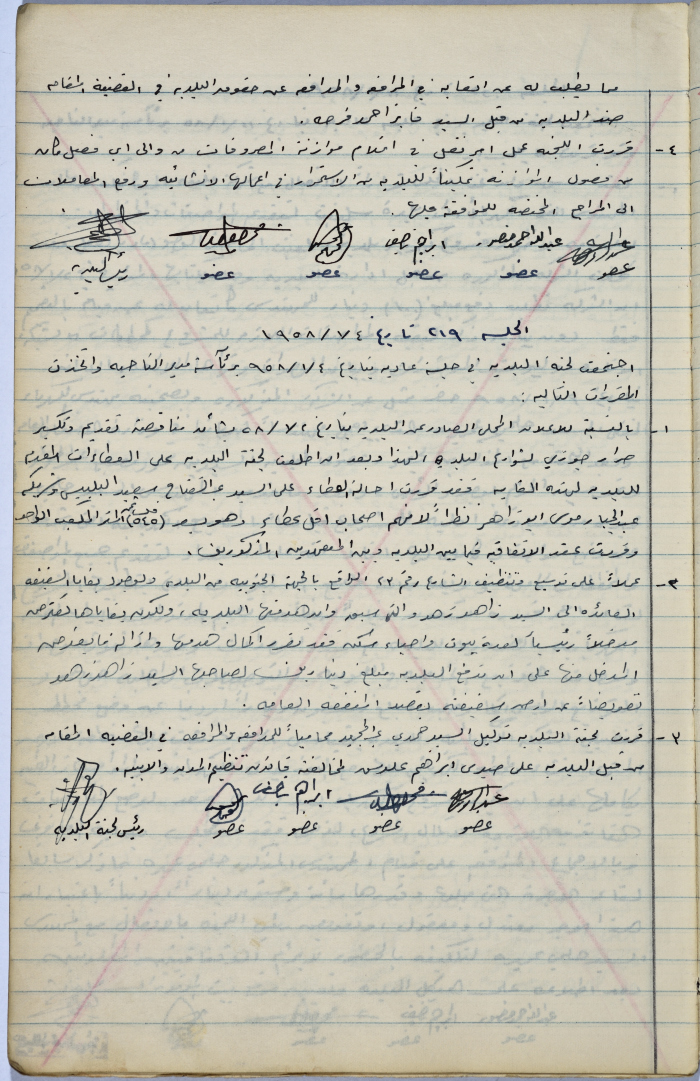 مما يطلب له عن اتعابه في المرافعه والمدافعه عن حقوق البلديه في القضية المقامه
ضد البلديه من قبل السيد فايز احمد فرحه .
٤ - قررت اللجنه عمل امر نقل في اقلام موازنة المصروفات من والى اي فصل كان
من فصول الموازنه تمكيناً للبلديه من الاستمرار في اعمالها الانشائيه ورفع المعاملات
الى المراجع المختصه للموافقة عليها .
عبدالله احمد منصور ابراهيم
عضو عضو عضو عضو عضو رئيس البلديه
الجلسه ٢١٩ تاريخ ١٩٥٨/٧/٤
اجتمعت لجنة البلديه في جلسة عاديه بتاريخ ٩٥٨/١/٤ برئآسة مدير الناحيه واتخذت
المقررات التاليه :
١ - بالنسبة للاعلان المحلي الصادر عن البلديه بتاريخ ٥٨/٧/٢ بشأن مناقصة تقديم وتكسير
حرار صوتي لشوارع البلده ، لهذا وبعد ان اطلعت لجنة البلديه على العطاءات المقدمه
للبلديه لهذه الغايه فقد قررت احالة العطاء على السيد عبدالفتاح سعيد البلبيسي وشريكه
عبدالجبار موسى ابو زاهر نظراً لانهم اصحاب اقل عطاء وهو بسعر (٥٤٥) المتر المكعب الواحد
وقررت عقد الاتفاقيه فيما بين البلديه وبين المتعهدين المذكورين .
٢ - عملاً على توسيع وتنظيف الشارع رقم ٢٢ الواقع بالجهة الجنوبيه من البلده ولوجود بقايا السقيفه
العائده الى السيد زاهد زهد والتي سبق وان هدمتها البلديه ، ولكون بقاياها تعترض
مدخلاً رئيسياً لعدة بيوت واحياء سكنه فقد تقرر اكمال هدمها وازالة ما يعترض
المدخل منها على ان تدفع البلديه مبلغ دينارين لصاحبها السيد زاهد زهد
تعويضاً عن ارض سقيفته بقصد المنفعه العامه .
٣ - قررت لجنة البلديه توكيل السيد حمدي عبدالمجيد محامياً للمدافعه والمرافعه في القضيه المقامه
من قبل البلديه على صبري ابراهيم علوش لمخالفته قانون تنظيم المدن والابنيه .
ابراهيم
عضو عضو عضو عضو رئيس لجنة البلديه